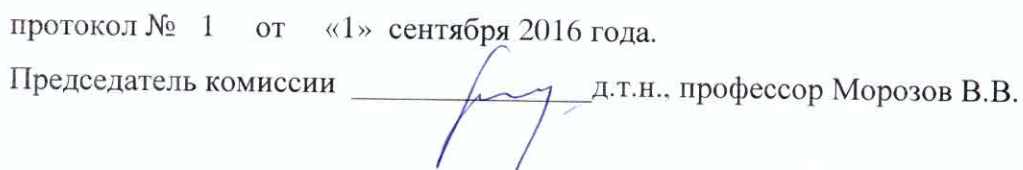 протокол № 1 от «1» сентября 2016 года.
Председатель комиссии ________________ д.т.н., профессор Морозов В.В.